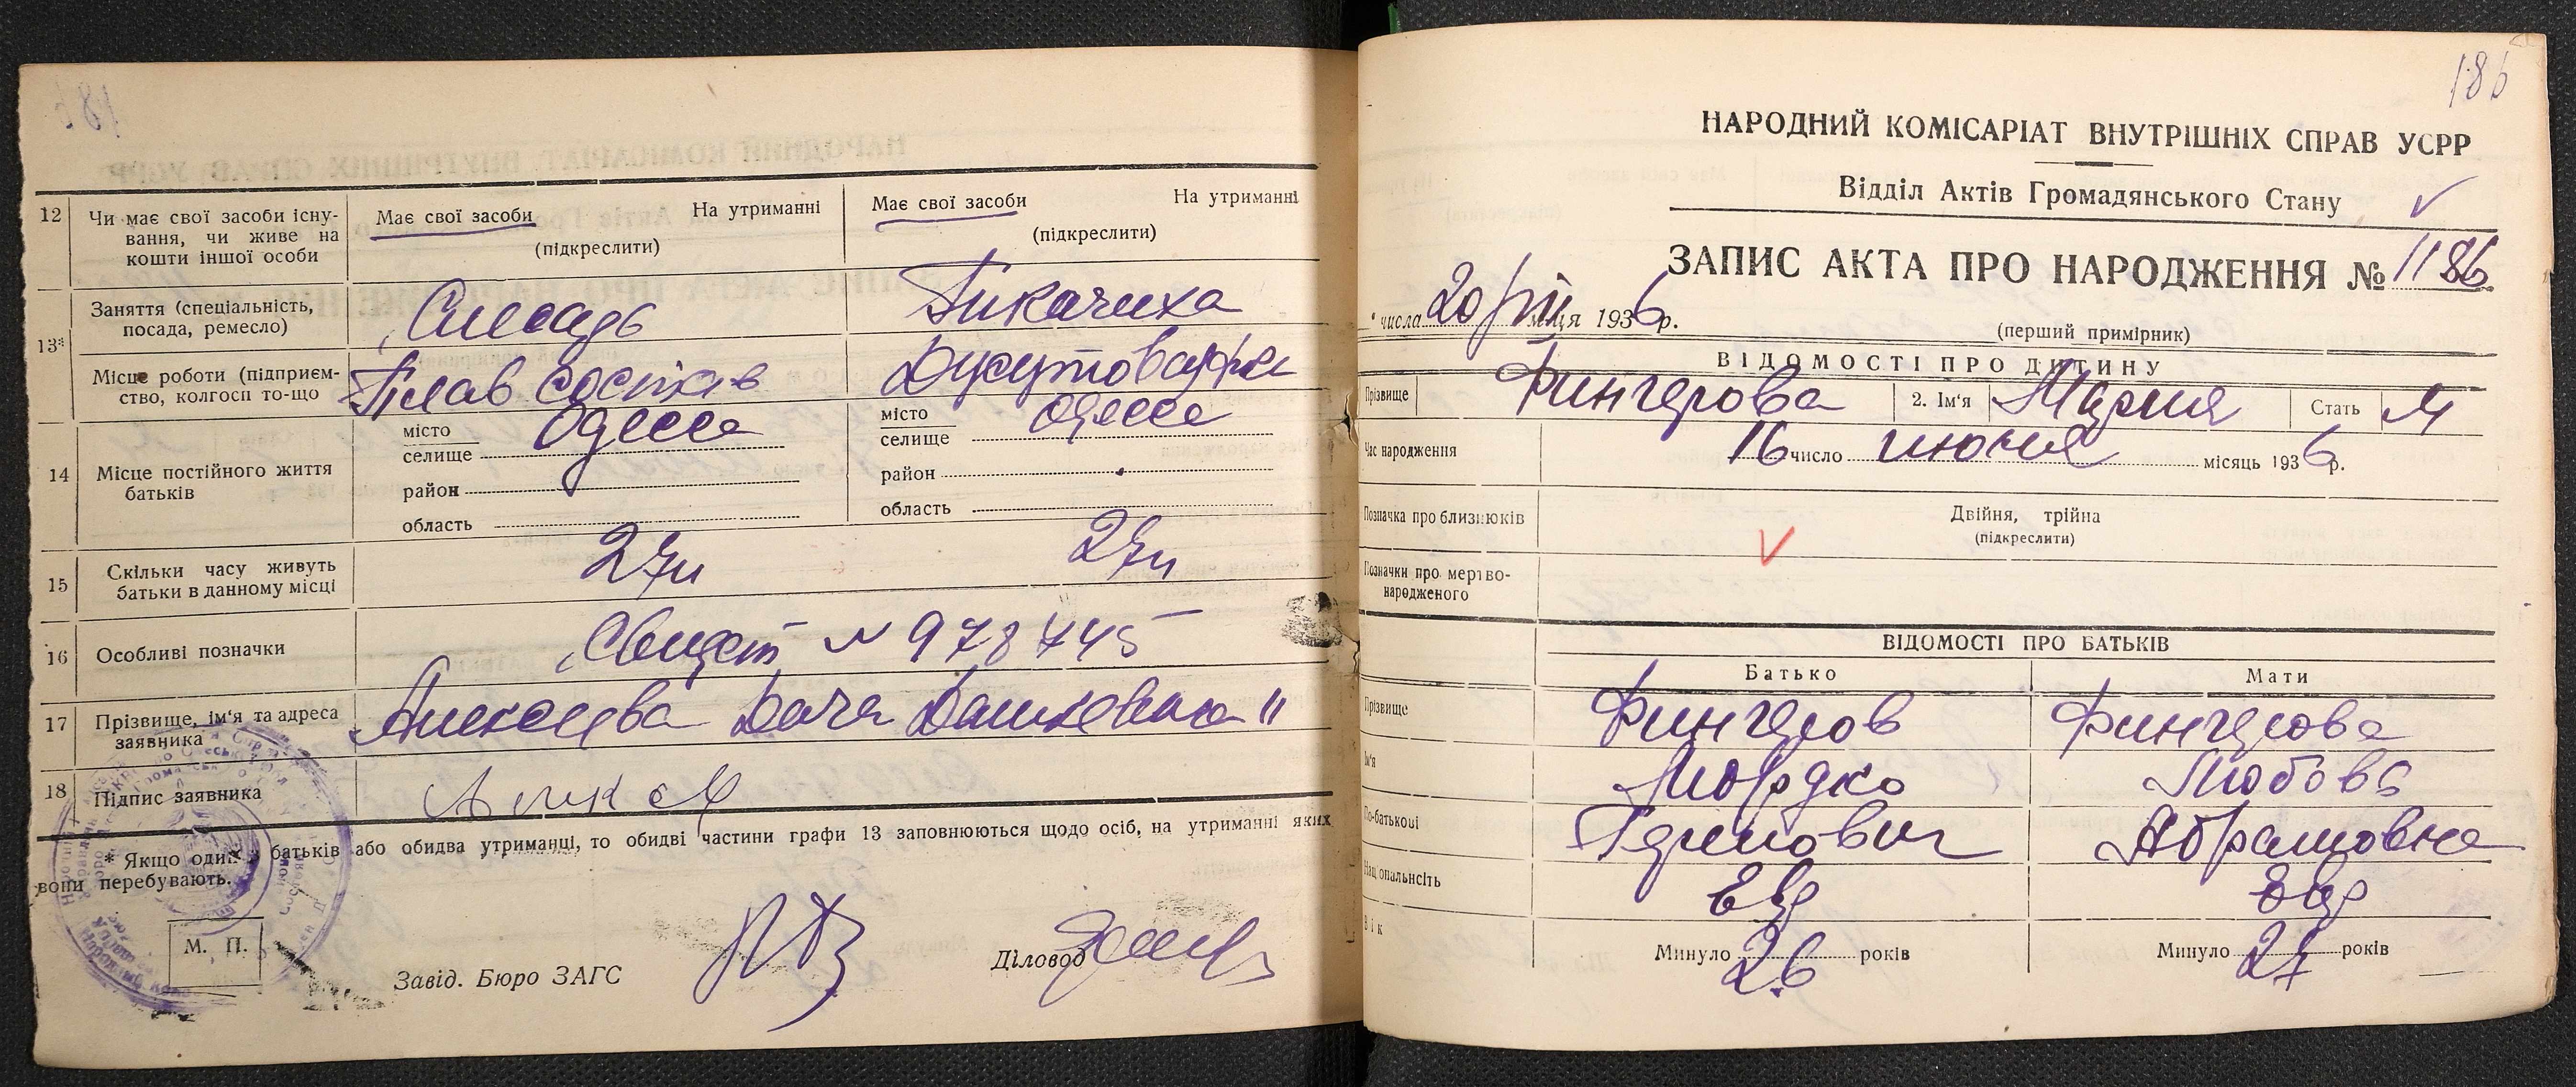 12
Чи має свої засоби існування, чи живе на кошти іншої особи
Має свої засоби На утриманні
(підкреслити)
Має свої засоби На утриманні
(підкреслити)
13*
Заняття (спеціальність, посада, ремесло)
Слесарь
Місце роботи (підприємство, колгосп то-що
Джутовая фка
14
Місце постійного життя батьків
місто
селище
Одесса
район
область
місто
селище
Одесса
район
область
15
Скільки часу живуть батьки в данному місці
16
Особливі позначки
Свидет № 978745
17
Прізвище, ім'я та адреса заявника
Алексеева Дача
18
Підпис заявника
* Якщо один з батьків або обидва утриманці, то обидві частини графи 13 заповнюються щодо осіб, на утриманні яких
вони перебувають.
М. П.
Завід. Бюро ЗАГС
Діловод
186
НАРОДНИЙ КОМІСАРІАТ ВНУТРІШНІХ СПРАВ УСРР
Відділ Актів Громадянського Стану
ЗАПИС АКТА ПРО НАРОДЖЕННЯ № 1186
числа 20/VII м-ця 1936р.
(перший примірник)
ВІДОМОСТІ ПРО ДИТИНУ
Прізвище Фингерова 2. Ім'я Мария Стать
Час народження 16 число июня місяць 1936р.
Позначка про близнюків
Двійня, трійна
(підкреслити)
Позначки про мертвонародженого
ВІДОМОСТІ ПРО БАТЬКІВ
Батько Мати
Прізвище Фингеров Фингерова
Ім'я Мордко Любовь
По-батькові Абрамовна
Національність Евр Евр
Вік Минуло 26 років Минуло 27 років